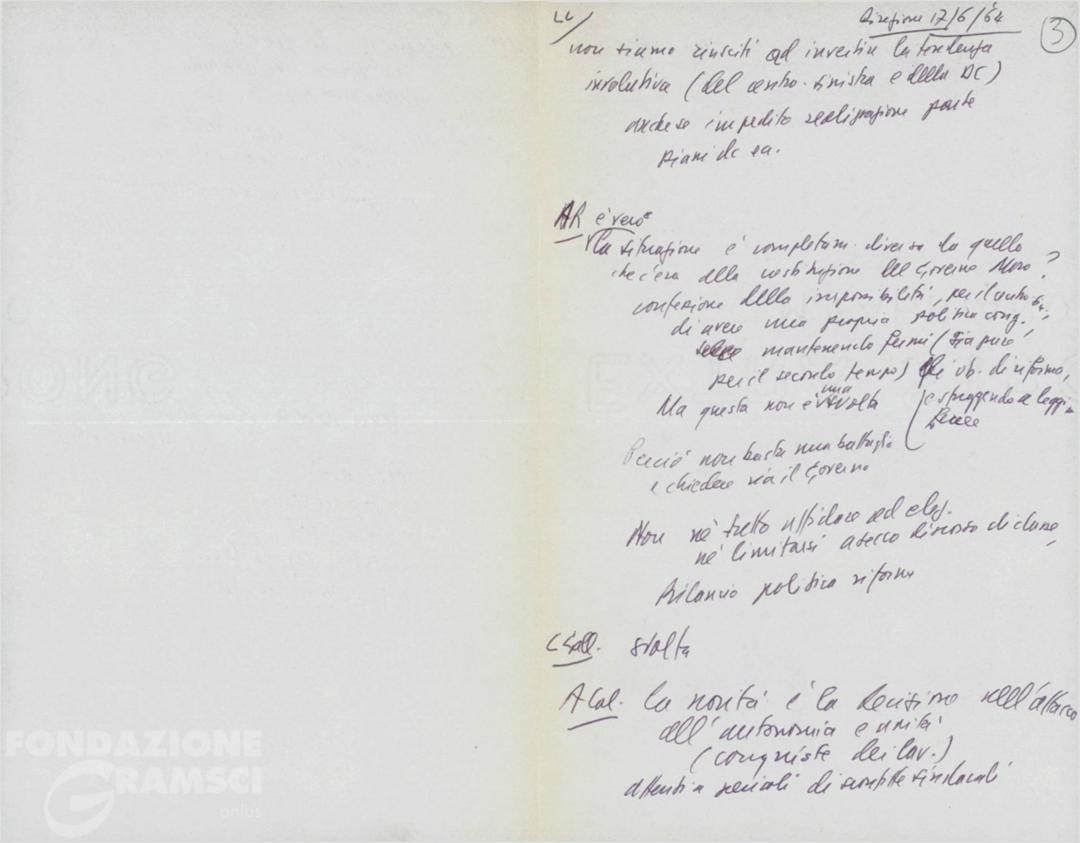 LL
Direzione 17/6/64
3
non siamo riusciti ad invertire la tendenza
involutiva (del centro-sinistra e della DC)
anche se impedito realizzazione parte
piani di
AR è vero
la situazione è completam. diversa da quella
che c'era alla costituzione del Governo Moro?
confessione della impossibilità, per il centro si.,
di avere una propria politica cong.,
mantenendo fermi (sia pure
per il secondo tempo) gli ob. di riforma,
Ma questa non è una svolta
e struggendo a leggi
Perciò non basta una battaglia
e chiedere via il Governo
Non né tutto affidare ad elez.
né limitarsi a secco discorso di classe,
Bilancio politica riforme
svolta
A Col. la novità è la decisione nell'attacco
all'autonomia e unità
(conquiste dei lav.)
attenti a pericoli di sconfitte sindacali
FONDAZIONE
GRAMSCI
onlus